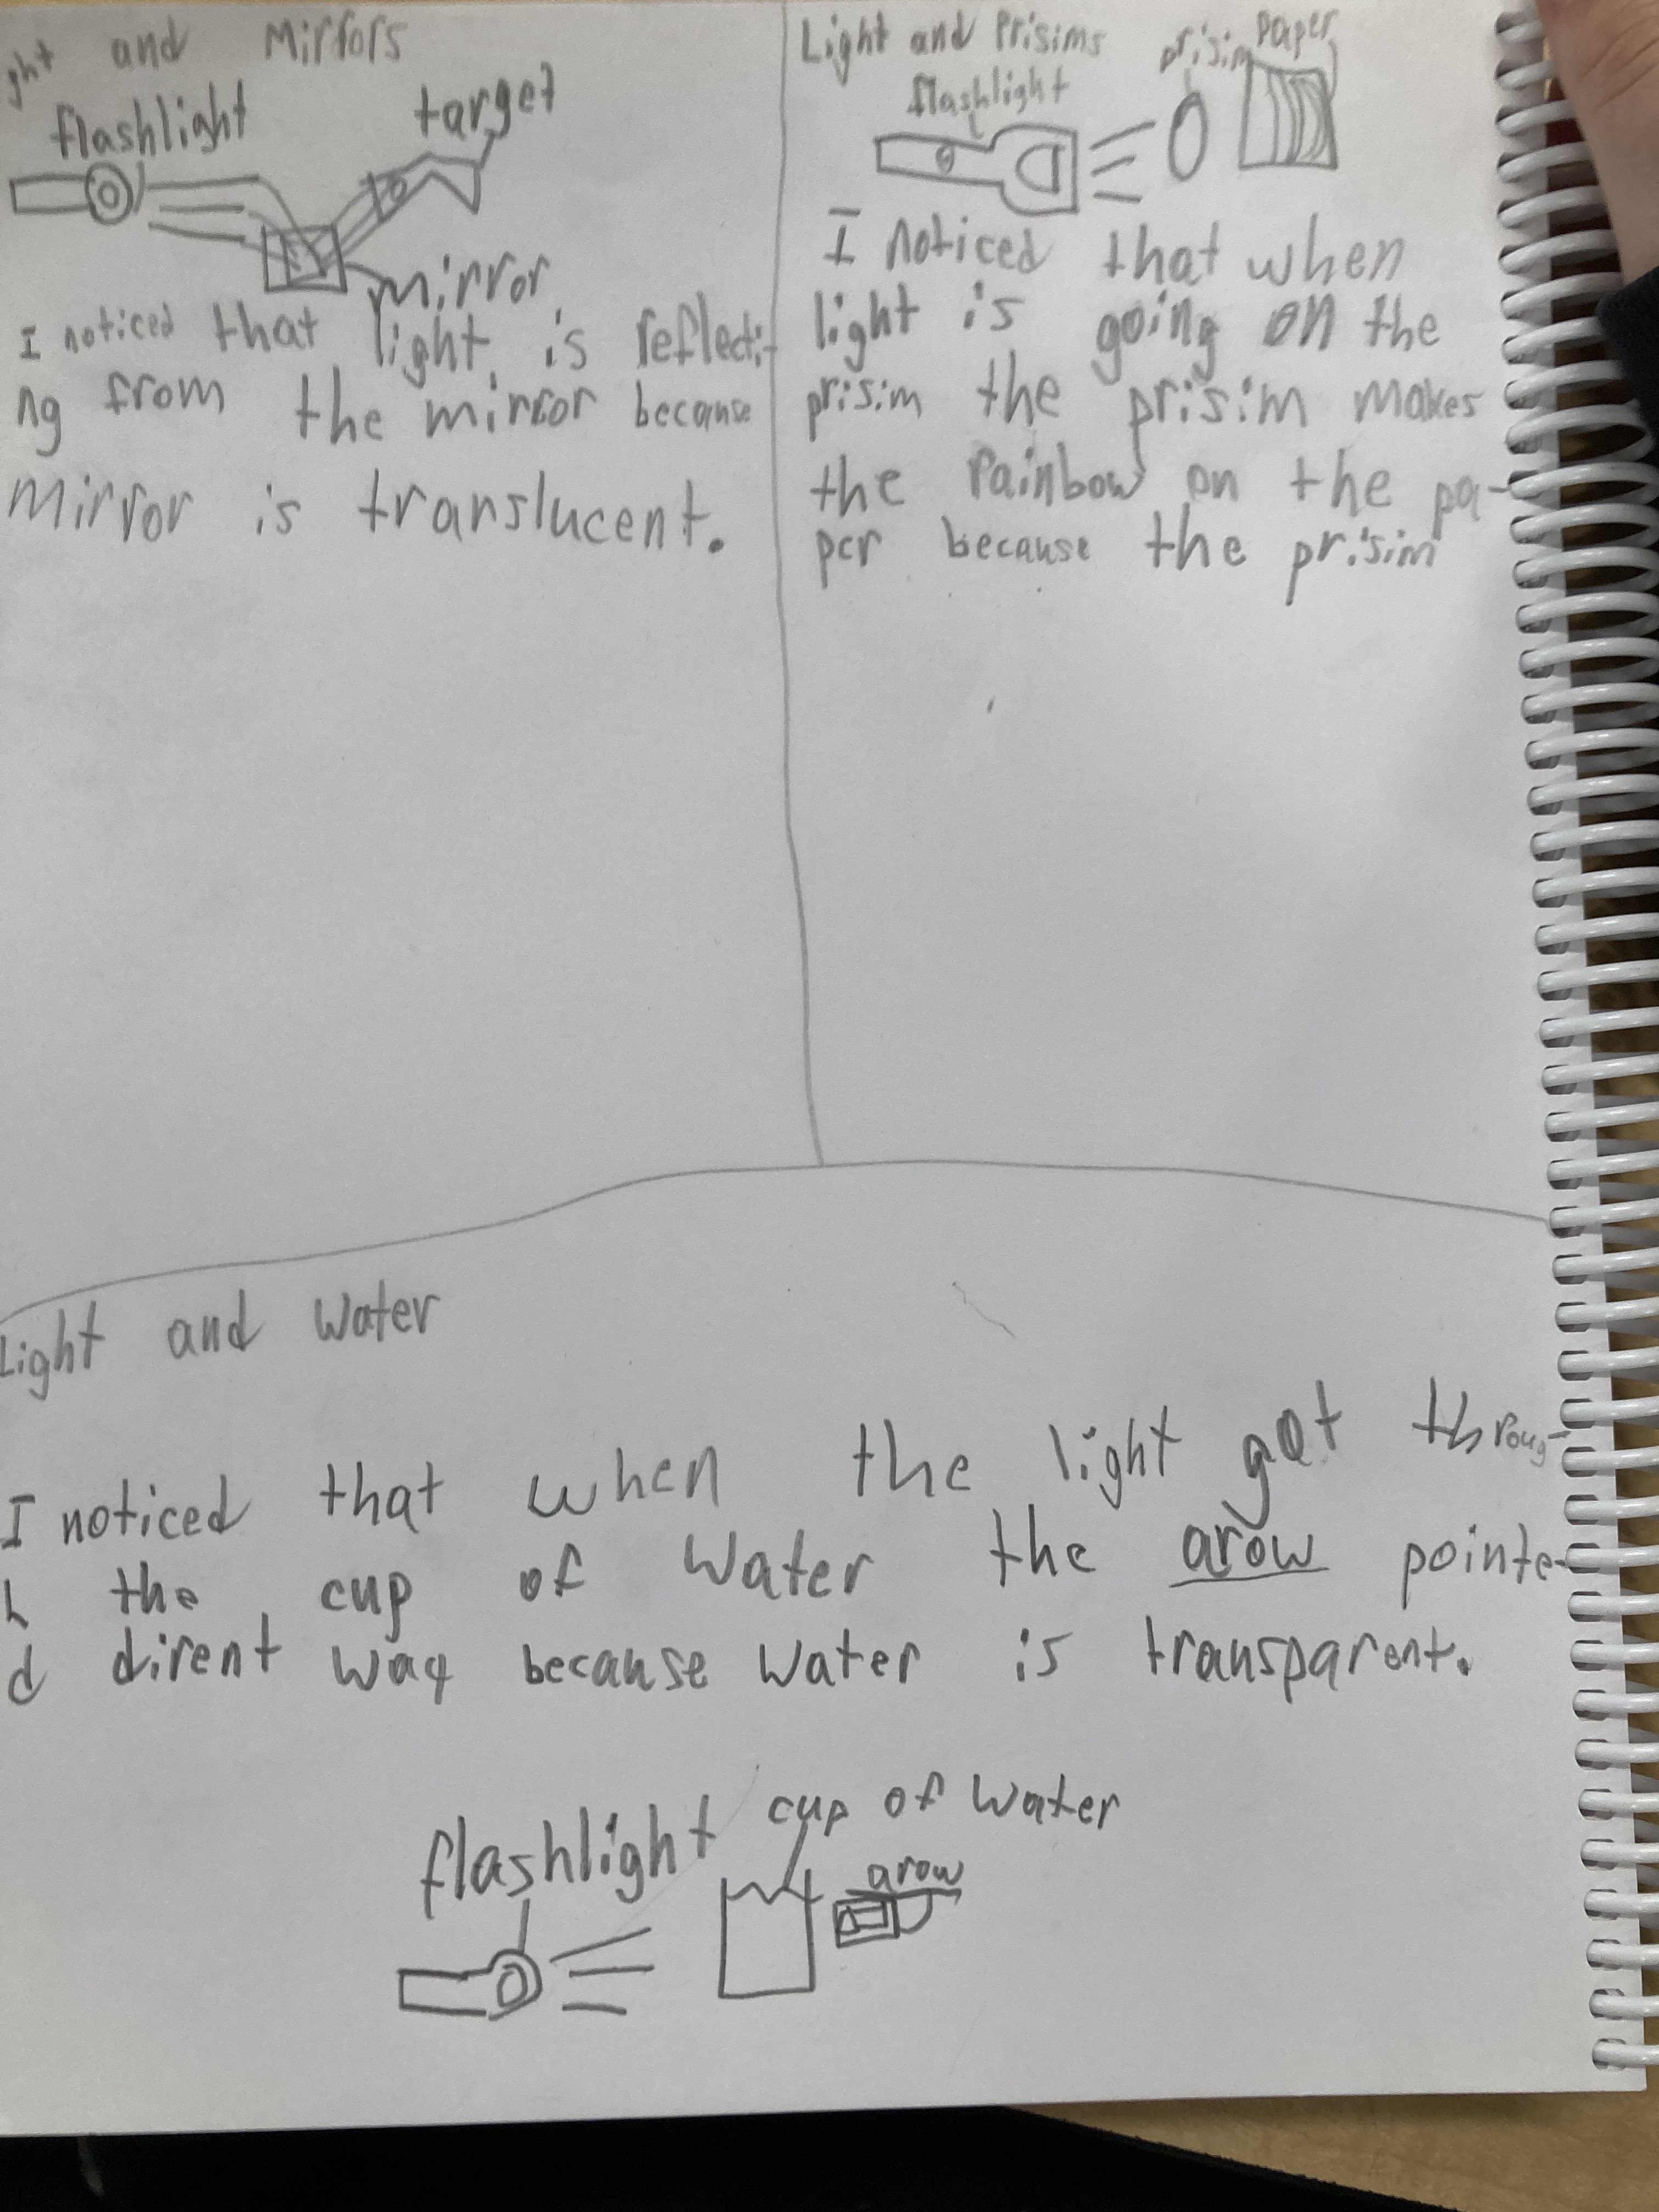 ght and Mirrors
flashlight
target
mirror
I noticed that light is reflecti-
ng from the mirror because
mirror is translucent.
Light and Prisims
flashlight
prisim
paper
I noticed that when
light is going on the
prisim the prisim makes
the rainbow on the pa-
per because the prisim
Light and Water
I noticed that when the light got throug-
h the cup of water the arow pointe-
d dirent way because water is transparent.
flashlight
cup of water
arow